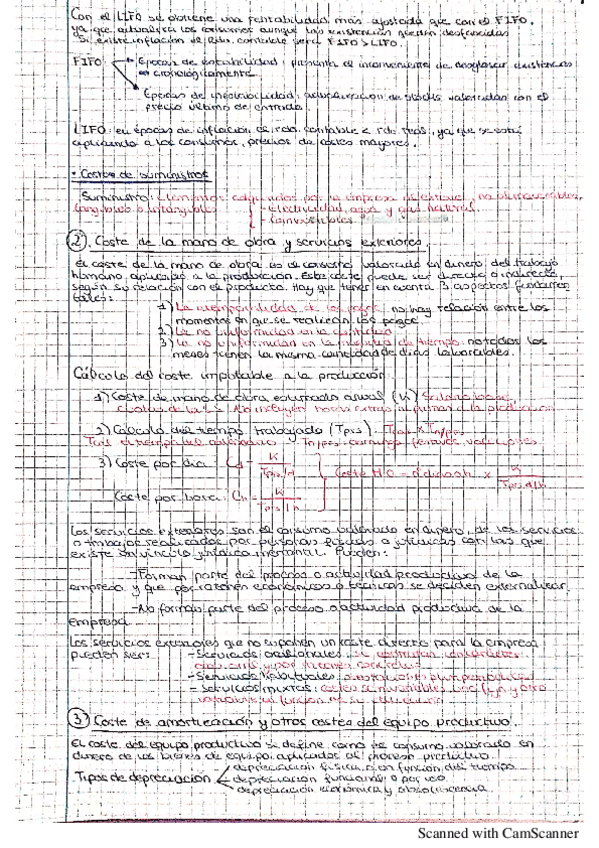 Con el LIFO se obtiene una rentabilidad más ajustada que con el FIFO,
ya que actualiza los consumos aunque las existencias quedan desfasadas
Si existe inflación el Rdo. contable será FIFO > LIFO.
FIFO Épocas de estabilidad: presenta el inconveniente de desglosar existencias
cronológicamente.
Épocas de inestabilidad: de stocks valorados con el
precio último de entrada.
LIFO: en épocas de inflación el rdo. contable < rdo real, ya que se está
aplicando a los consumos, precios de costes mayores.
· Costes de suministros
Suministro: elementos adquiridos por la empresa al exterior, no almacenables,
tangibles o intangibles - electricidad, agua y gas natural.
- Combustibles
2) Coste de la mano de obra y servicios exteriores.
El coste de la mano de obra es el consumo valorado en dinero del trabajo
humano aplicado a la producción. Este coste puede ser directo o indirecto,
según su relación con el producto. Hay que tener en cuenta 3 aspectos fundamen
tales:
1) La de los pagos: no hay relación entre los
momentos en que se realizan los pagos.
2) La no uniformidad en la
3) La no uniformidad en la de tiempo. no todos los
meses tienen la misma cantidad de días laborables.
Cálculo del coste imputable a la producción
1) Coste de mano de obra estimado anual (K)
No incluyen horas extras ni primas a la producción
2) Cálculo del tiempo trabajado (Tprs).
3) Coste por día: Cd = K / Tprs/d
Coste MO = d' dias o h × K / Tprs d/h
Coste por hora: Ch = K / Tprs/h
Los servicios exteriores son el consumo valorado en dinero, de los servicios
o trabajos realizados por personas físicas o jurídicas con las que
existe un vínculo jurídico mercantil. Pueden:
- Forman parte del proceso o actividad productiva de la
empresa y que por razones económicas o técnicas se deciden externalizar
- No forman parte del proceso o actividad productiva de la
empresa
Los servicios exteriores que no suponen un coste directo para la empresa
pueden ser: - Servicios ocasionales:
- Servicios habituales:
- Servicios mixtos:
3) Coste de amortización y otros costes del equipo productivo.
El coste del equipo productivo se define como el consumo valorado en
dinero de los bienes de equipo aplicados al proceso productivo
Tipos de depreciación depreciación física o en función del tiempo
depreciación funcional o por uso
depreciación económica y obsolescencia
Scanned with CamScanner